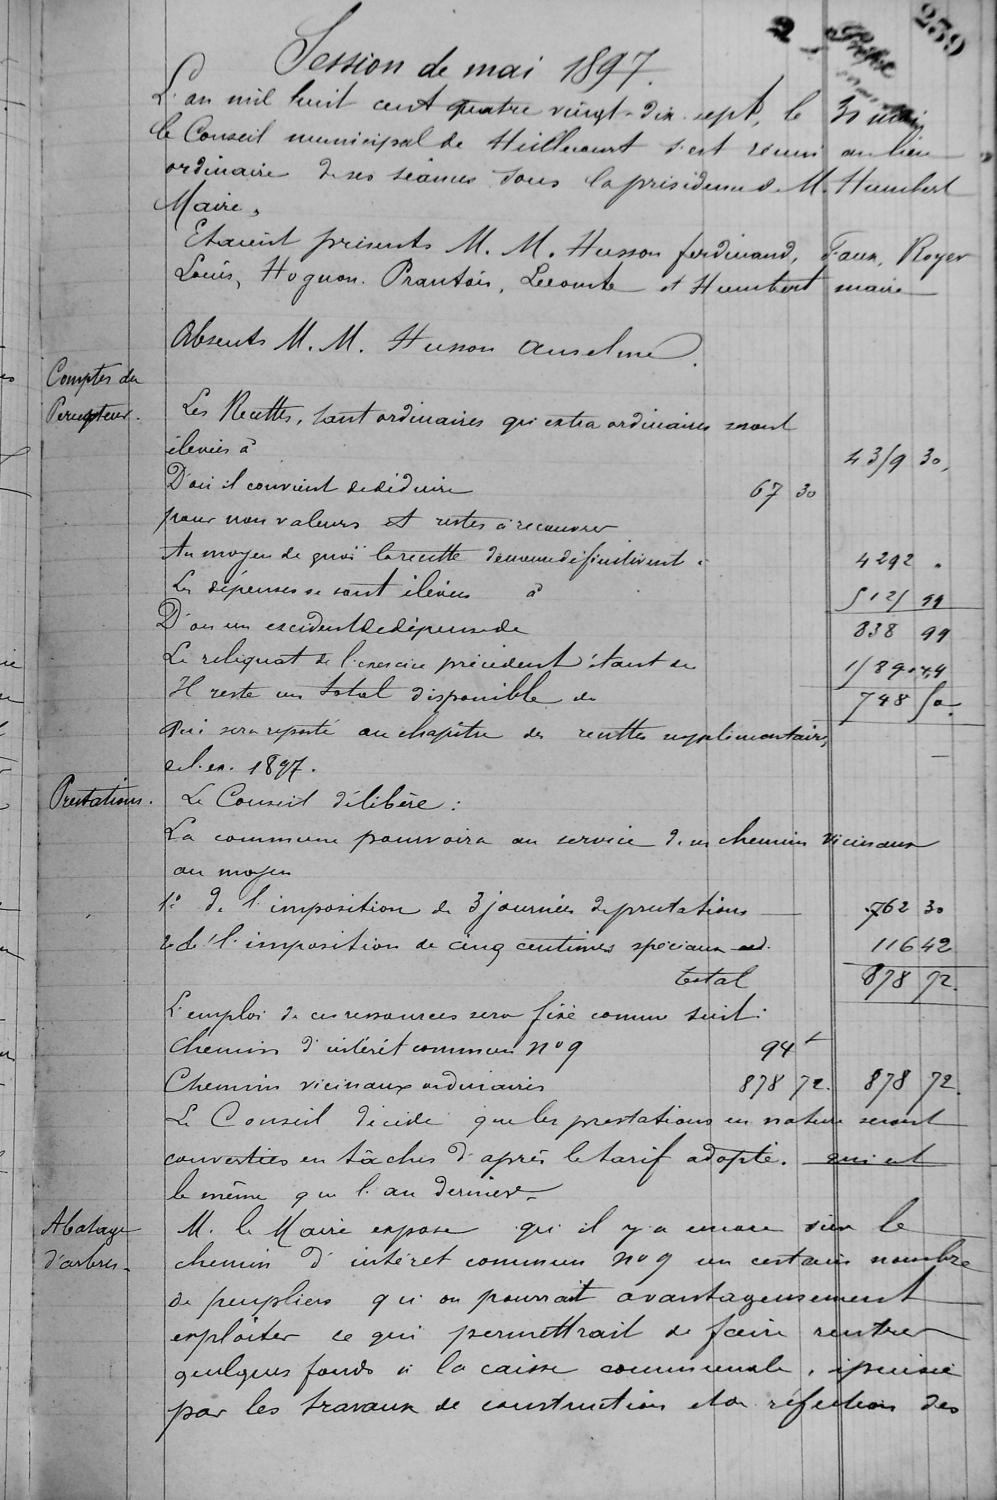 239
2
Session de mai 1897.
L'an mil huit cent quatre vingt-dix-sept, le 30 mai
le Conseil municipal de Heillecourt s'est réuni au lieu
ordinaire de ses séances sous la présidence de M. Humbert
Maire.
Etaient présents M. M. Husson ferdinand, Faux, Royer
Louis, Hognon. Prantois, Lecomte et Humbert maire
Absents M. M. Husson Anselme.
Comptes du
Percepteur.
Les Recettes, tant ordinaires qu'extra ordinaires
élevées à 4359 30,
D'où il convient de déduire 67 30
pour non valeurs et restes à recouvrer
Au moyen de quoi la recette demeure définitivent à 4292 "
Les dépenses se sont élevées à 5125 99
D'où un excédent de dépense de 838 99
Le reliquat de l'exercice précédent étant de
Il reste un total disponible de 748 50.
Qui sera reporté au chapitre des recettes supplémentaires
de l'ex. 1897.
Prestations.
Le Conseil délibère :
La commune pourvoira au service de ses chemins vicinaux
au moyen
1° de l'imposition de 3 journées de prestations 762 30
2° de l'imposition de cinq centimes spéciaux 116 42
total 878 72.
L'emploi de ces ressources sera fixé comme suit :
Chemins d'intérêt commun n° 9 94
Chemins vicinaux ordinaires 878 72. 878 72.
Le Conseil décide que les prestations en nature seront
converties en tâches d'après le tarif adopté. qui est
le même que l'an dernier.
Abatage
d'arbres.
M. le Maire expose qu'il y a encore sur le
chemin d'intérêt commun n° 9 un certain nombre
de peupliers qu'on pourrait avantageusement
exploiter ce qui permettrait de faire rentrer
quelques fonds à la caisse communale, épuisée
par les travaux de construction et de réfection des